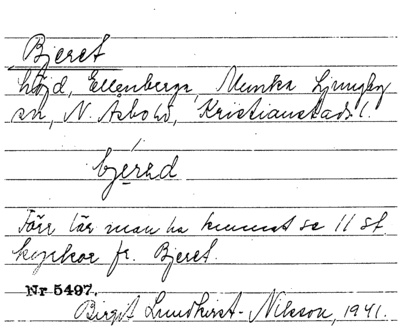 Bjeret
höjd, Ellenberga, Munka Ljungby
sn, N. Åsbo hd, Kristianstads l.
bjérəd
Förr lär man ha kunnat se 11 st.
kyrkor fr. Bjeret.
Nr 5497.
Birgit Lundkvist-Nilsson, 1941.